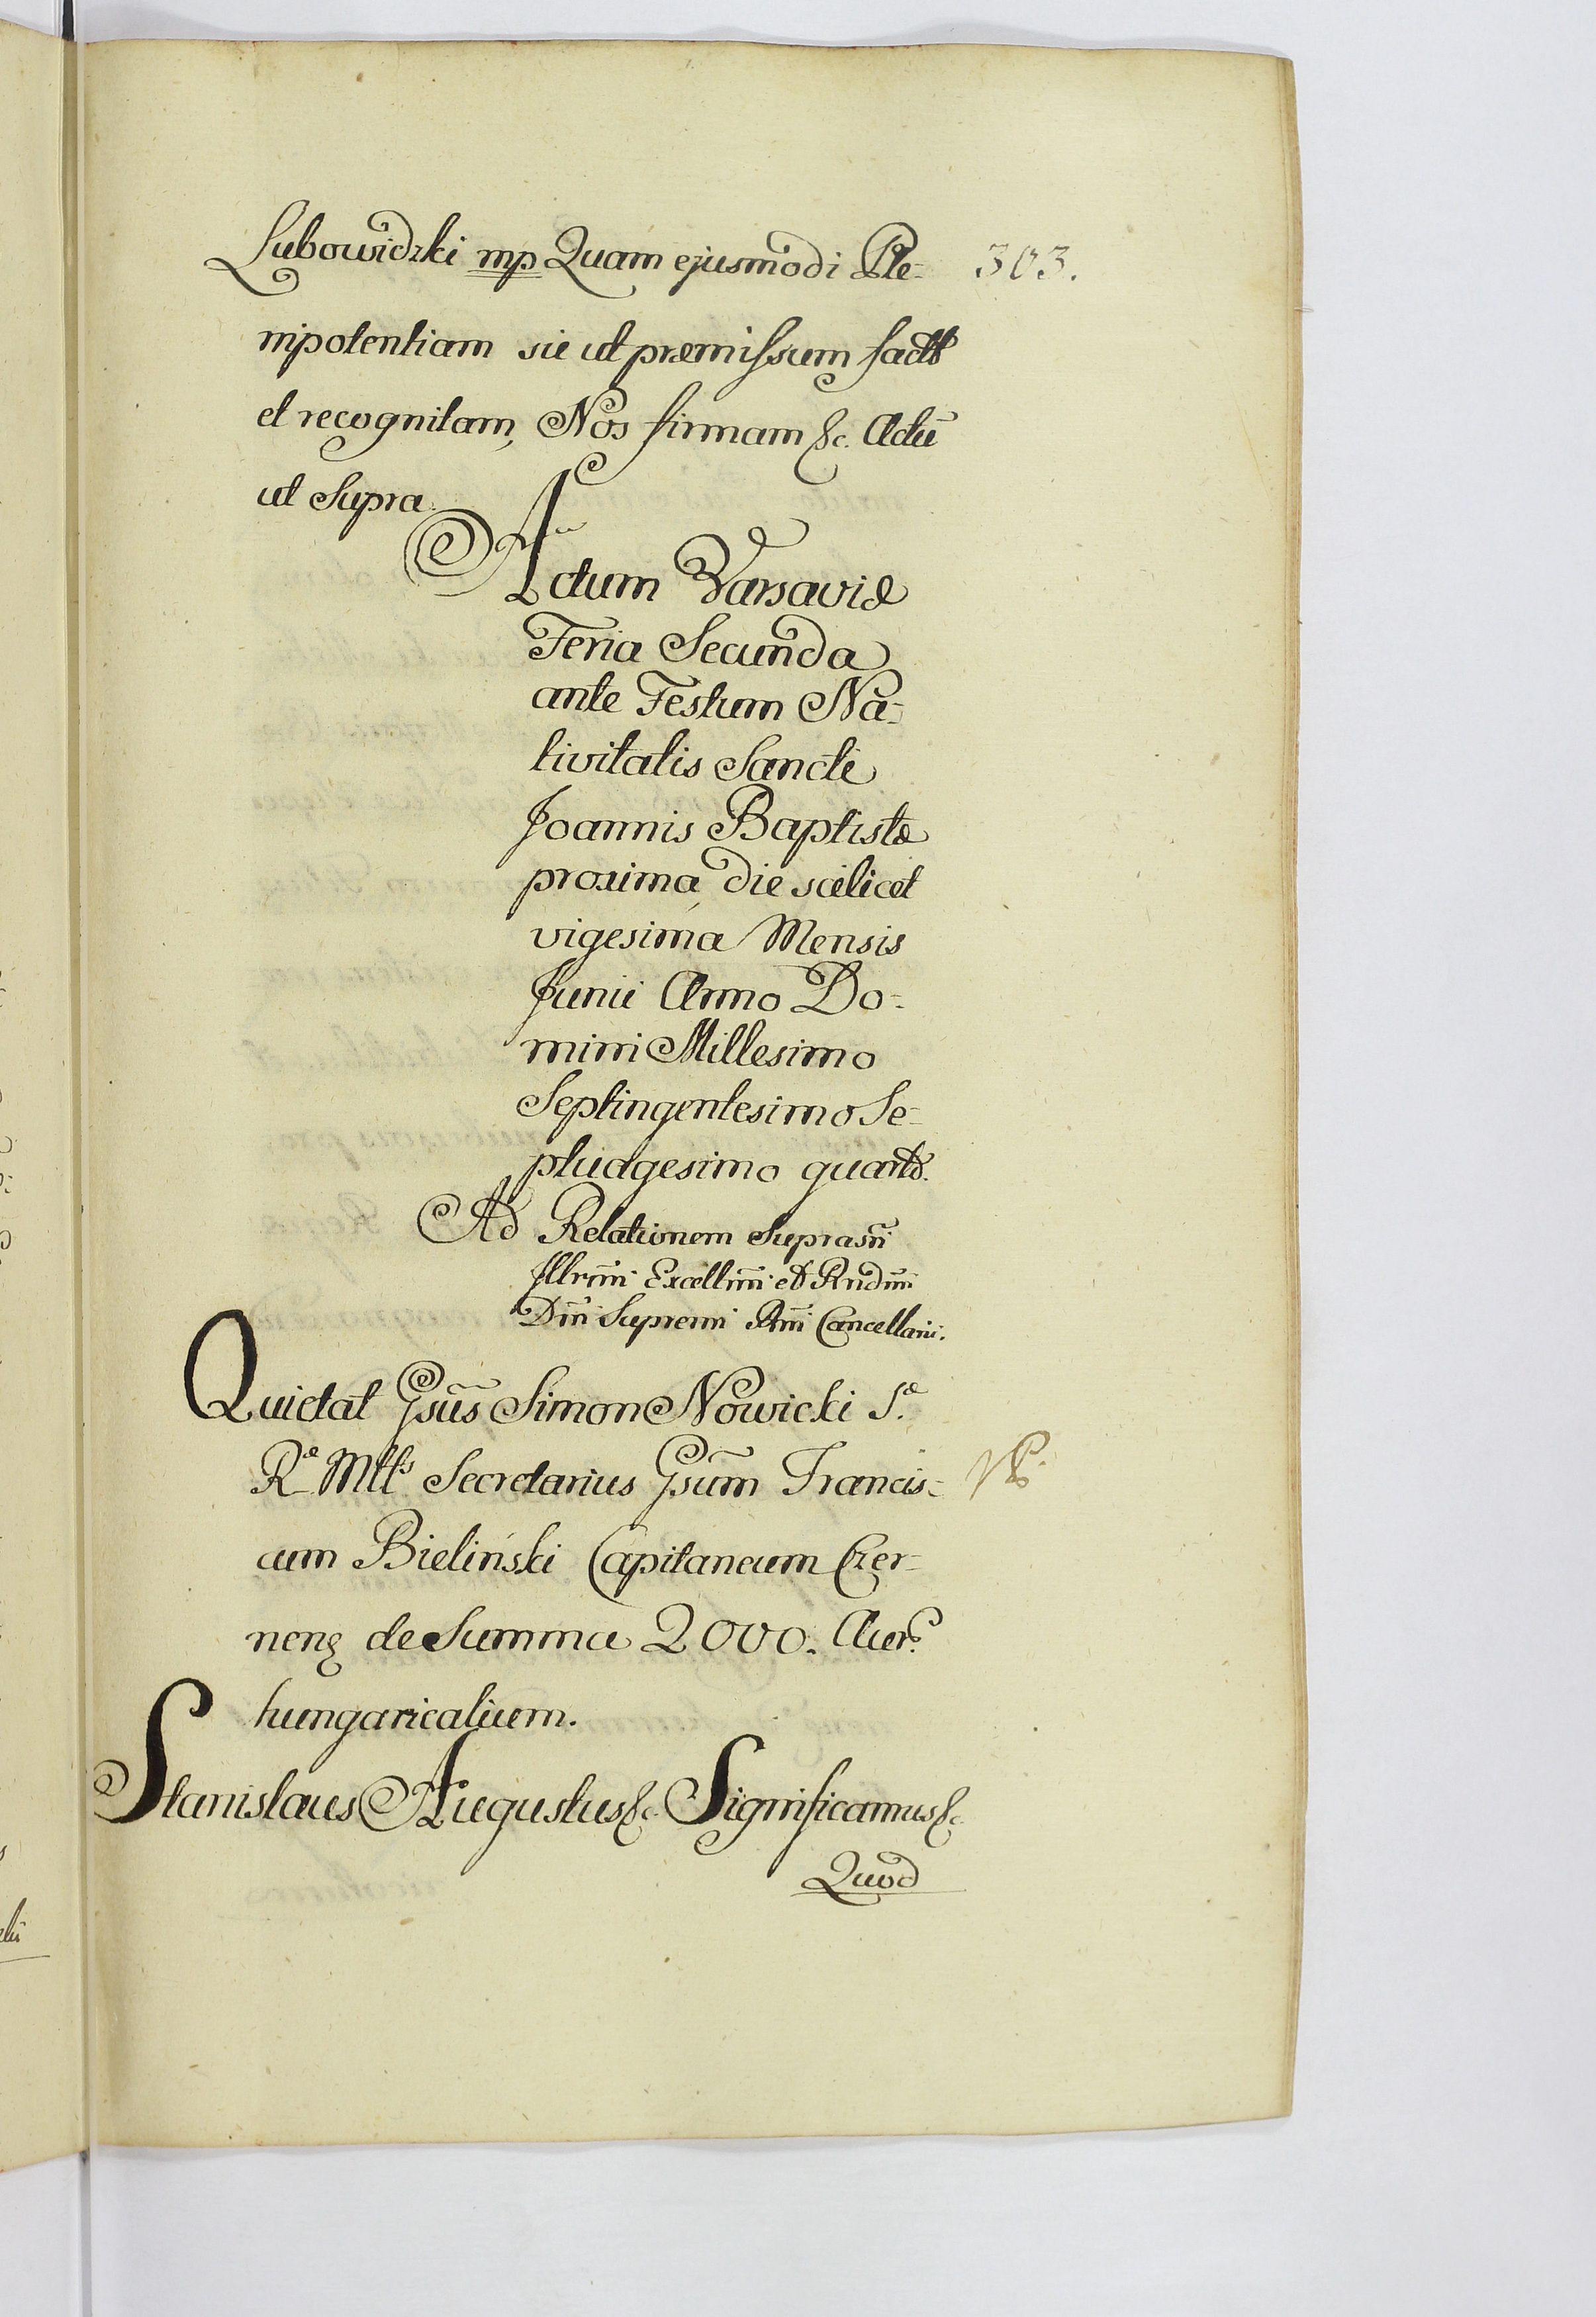 Lubowidzki mp Quam ejusmodi Ple- 303.
nipotentiam sic ut præmissum fact
et recognitam, Nos firmam &c. Actū
ut Supra.
Actum Varsaviæ
Feria Secunda
ante Festum Na-
tivitatis Sancti
Joannis Baptistæ
proxima, die scilicet
vigesima Mensis
Junii Anno Do-
mini Millesimo
Septingentesimo Se-
ptuagesimo quarto.
Ad Relationem Suprasñi
Illrm̃i Excellm̃i et Rndm̃i
Dm̃i Supremi Rñi Cancellarii.
Quietat Gsũs Simon Nowicki S.ᵃ
Rᵃ Mttˢ Secretarius Gsũm Francis-
cum Bieliński Capitaneum Czer-
nenꝫ de Summa 2000. Aur.
hungaricalium.
Stanislaus Augustus &c. Significamus &c.
Quod